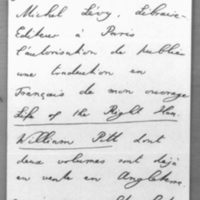 Michel Lévy, Libraire-
Editeur à Paris
l'autorisation de publier
une traduction en
Français de mon ouvrage
Life of the Right Hon.
William Pitt dont
deux volumes ont déjà
en vente en Angleterre.